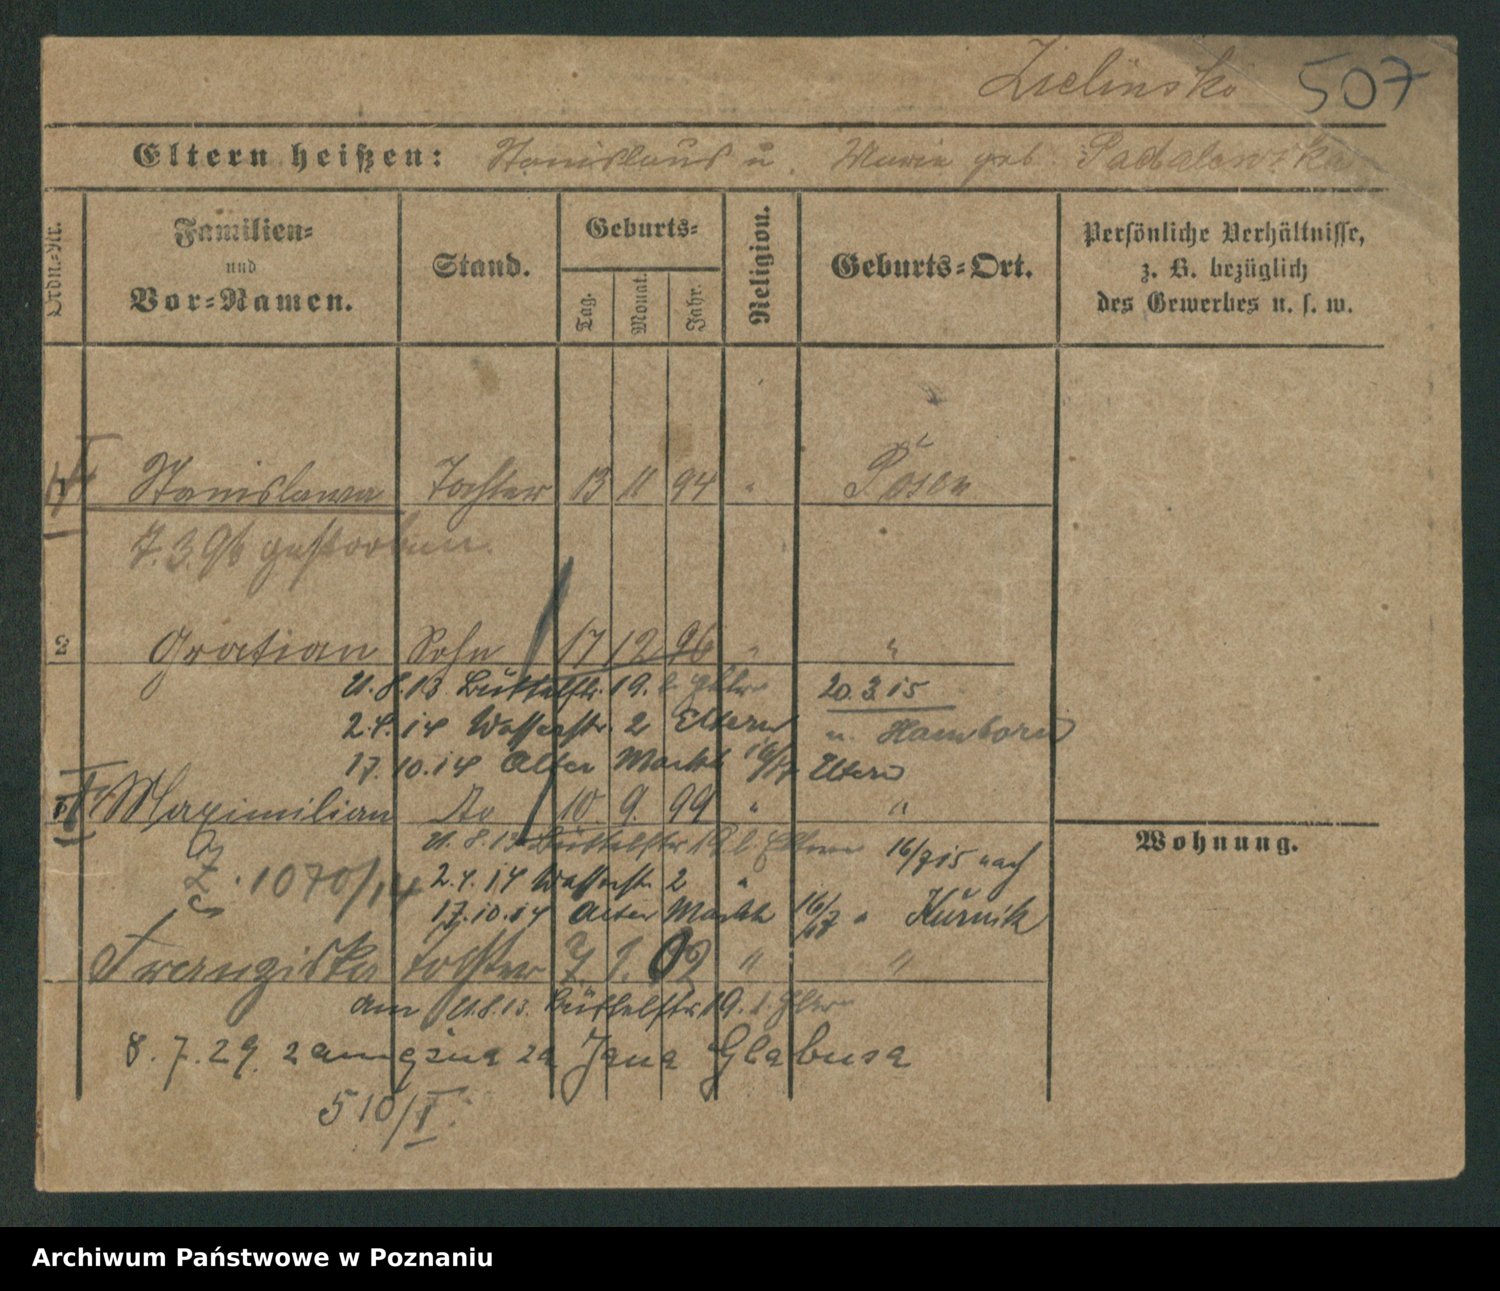 Zielinski 507
Eltern heißen: Stanislaus u. Marie geb. Padalewska
Ordn.-Nr.
Familien- und Vor-Namen.
Stand.
Geburts-
Tag. Monat. Jahr.
Religion.
Geburts-Ort.
Persönliche Verhältnisse,
z. B. bezüglich
des Gewerbes u. s. w.
Stanislawa Tochter 13 11 94 " Posen
7.3.96 gestorben.
2 Gratian Sohn 17 12 96 " "
11.8.13 Büttelstr. 19. 20.3.15
2.4.14 Wasserstr. 2 Eltern n. Hamborn
17.10.14 Alter Markt 16/17 Eltern
Maximilian do 10. 9. 99 " "
Wohnung.
11.8.13 Büttelstr 19 Eltern 16/7 15 nach
Z. 1070/14 2.4.14 Wasserstr. 2 "
17.10.14 Alter Markt " Kurnik
Franziska Tochter 7 1. 02 " "
am 11.8.13. Büttelstr 19.
8.7.29. zamężna za Jana Glabusa
510/I.
Archiwum Państwowe w Poznaniu